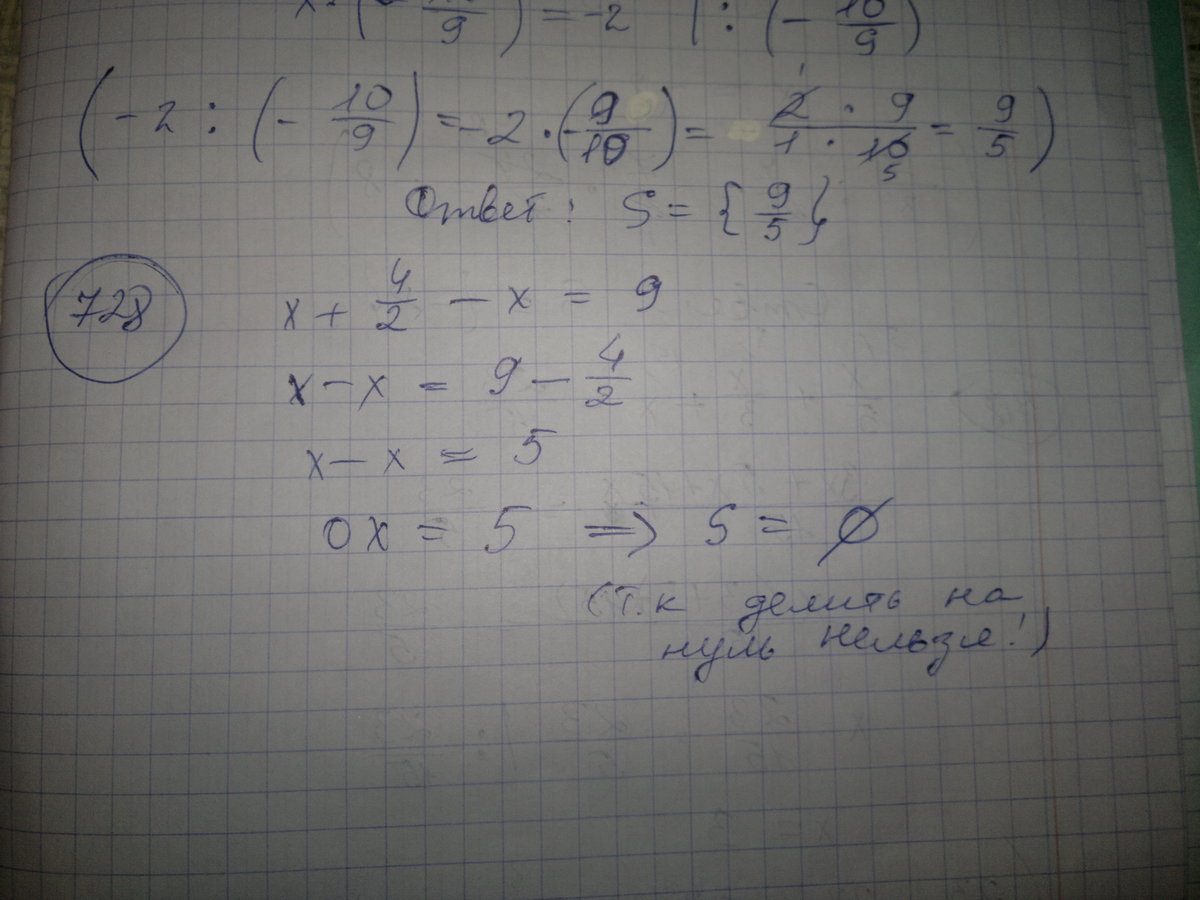 x · (- 10/9) = -2 | : (- 10/9)
(-2 : (- 10/9) = -2 · (- 9/10) = 2 · 9 / 1 · 10 = 9/5)
1 5
Ответ: S = {9/5}
728
x + 4/2 - x = 9
x - x = 9 - 4/2
x - x = 5
0x = 5 => S = ∅
(т.к делить на
нуль нельзя!)